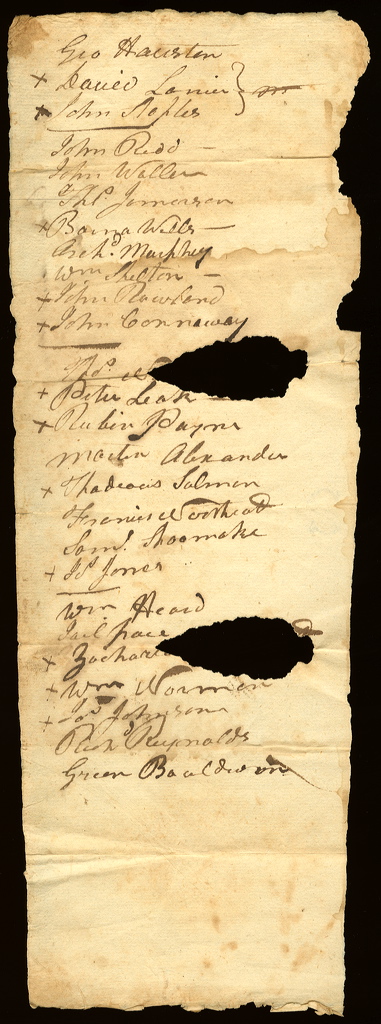 Geo Hairston
+ David Lanier
+ John Staples
John Redd –
John Waller
Thos Jameson
+ Barna Wells –
Archd Murphey
Wm Shelton –
+ John Rowland
+ John Connaway
Thos
+ Peter Leak
+ Rubin Payne
Martin Alexander
+ Thadeous Salmon
Francis Northcutt
Saml Shoomake
+ Js Jones
Wm Heard
+ Zacharia
+ Wm Norman
+ Jos Johnson
Richd Reynolds
Green Bouldwon